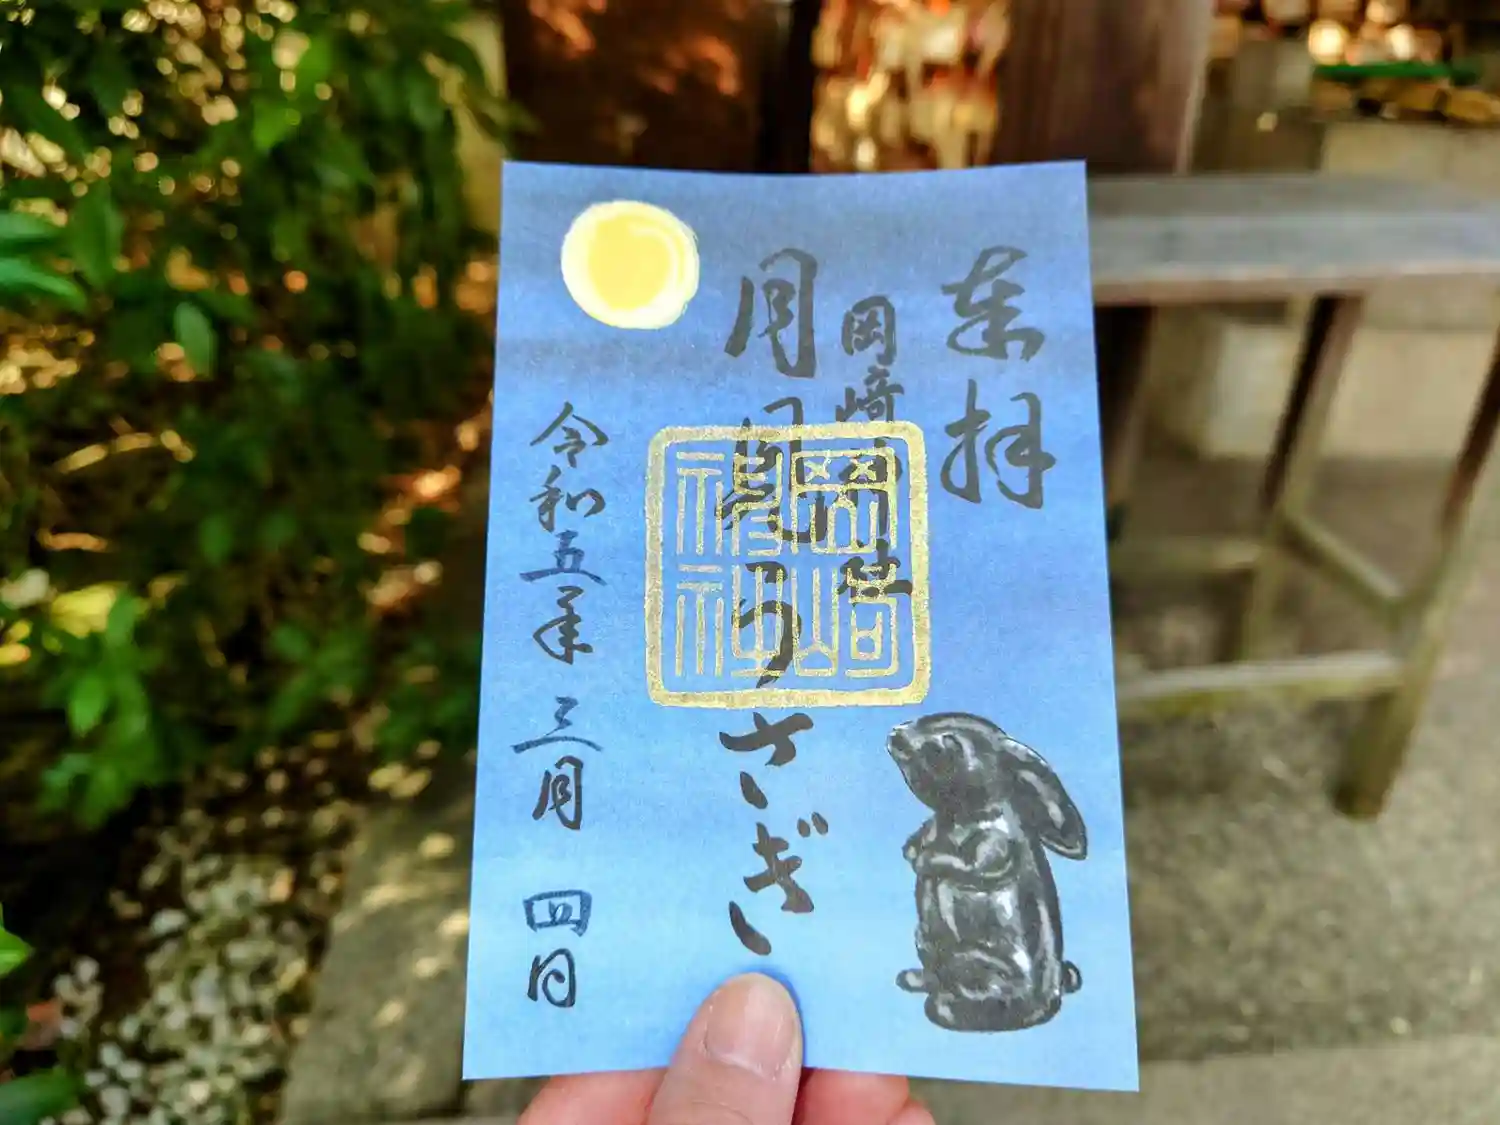 奉拝
岡崎神社
月見うさぎ
令和五年三月四日
岡崎
神社